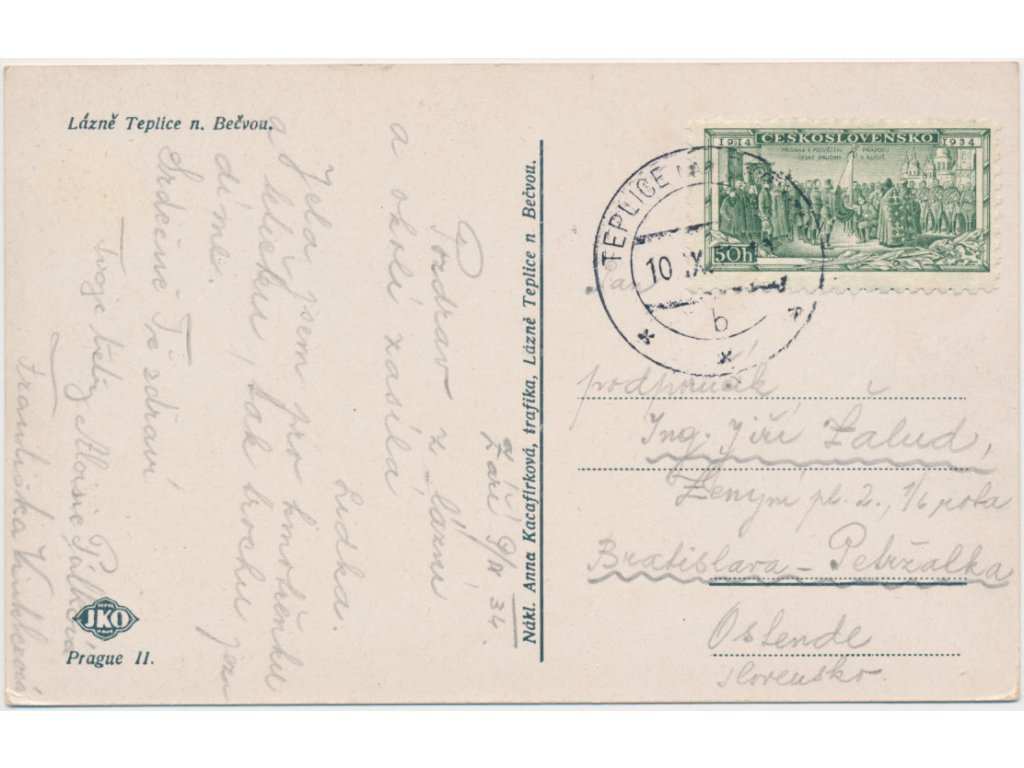 Lázně Teplice n. Bečvou.
Září 9/IX 34.
Pozdrav z lázní
a okolí zasílá
Lidka.
Jela jsem pro hmoždenku
a tetičku, tak trochu
díml.
Srdečně Tě zdraví
Tvoje tety Aloisie
Františka
JKO
Prague II.
Nákl. Anna Kacafírková, trafika, Lázně Teplice n Bečvou.
1914 ČESKOSLOVENSKO 1934
PŘÍSAHA A POSVĚCENÍ PRAPORU
ČESKÉ DRUŽINY V KIJEVĚ
50h
TEPLICE
10 IX
b
Pan
podporučík
Ing. Jiří Žalud,
Ženijní pl. 2, 1/6 rota
Bratislava - Petržalka
Ostende
Slovensko.